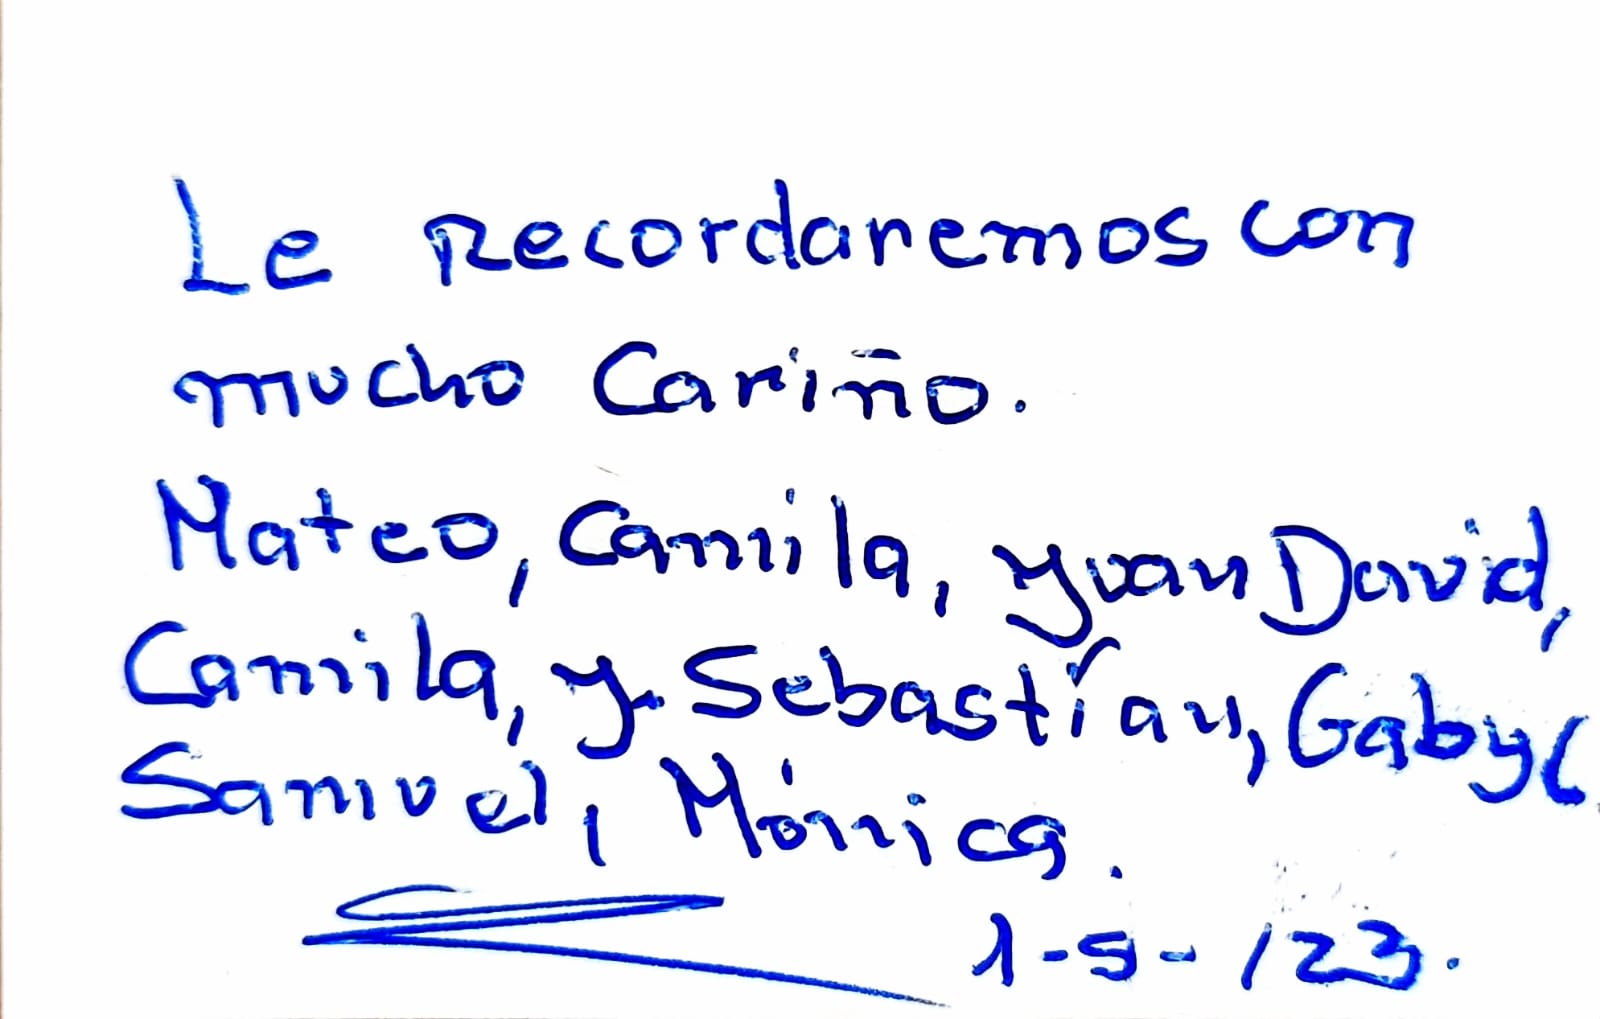 Le Recordaremos con
mucho Cariño.
Mateo, Camila, Juan David,
Camila, J. Sebastían, Gaby
Samuel, Mónica.
1-5-/23.